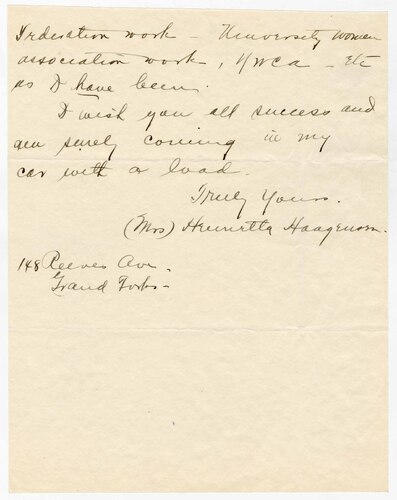 Federation work - University Women
association work, Y W C A - Etc
as I have been.
I wish you all success and
am surely coming in my
car with a load.
Truly Yours.
(Mrs) Henrietta Haagenson.
148 Reeves Ave.
Grand Forks -